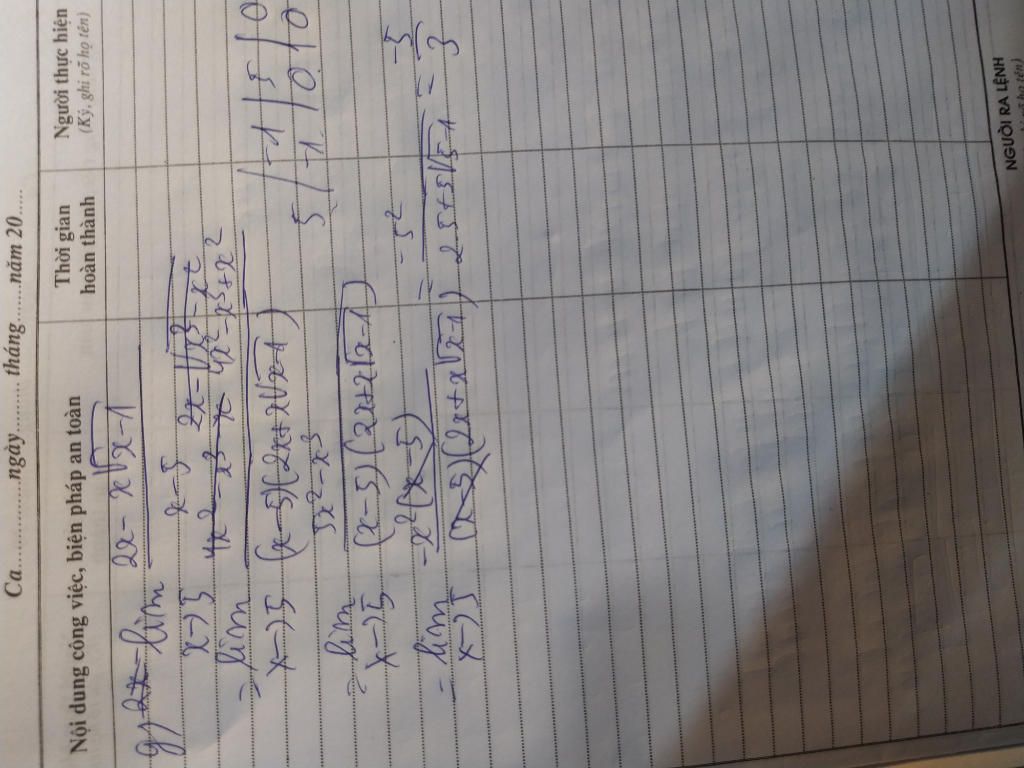 Ca............ngày.........tháng......năm 20......
Nội dung công việc, biện pháp an toàn
Thời gian hoàn thành
Người thực hiện
(Ký, ghi rõ họ tên)
g) lim x→5 (2x - x√(x-1)) / (x - 5)
= lim x→5 (4x² - x³ + x²) / ((x-5)(2x + x√(x-1)))
5 / -1 | 5 | 0 | 0
5 / -1 | 0 | 0 | 0
= lim x→5 (5x² - x³) / ((x-5)(2x + x√(x-1)))
= lim x→5 (-x²(x-5)) / ((x-5)(2x + x√(x-1))) = (-5²) / (2·5 + 5√(5-1)) = -5/3
NGƯỜI RA LỆNH